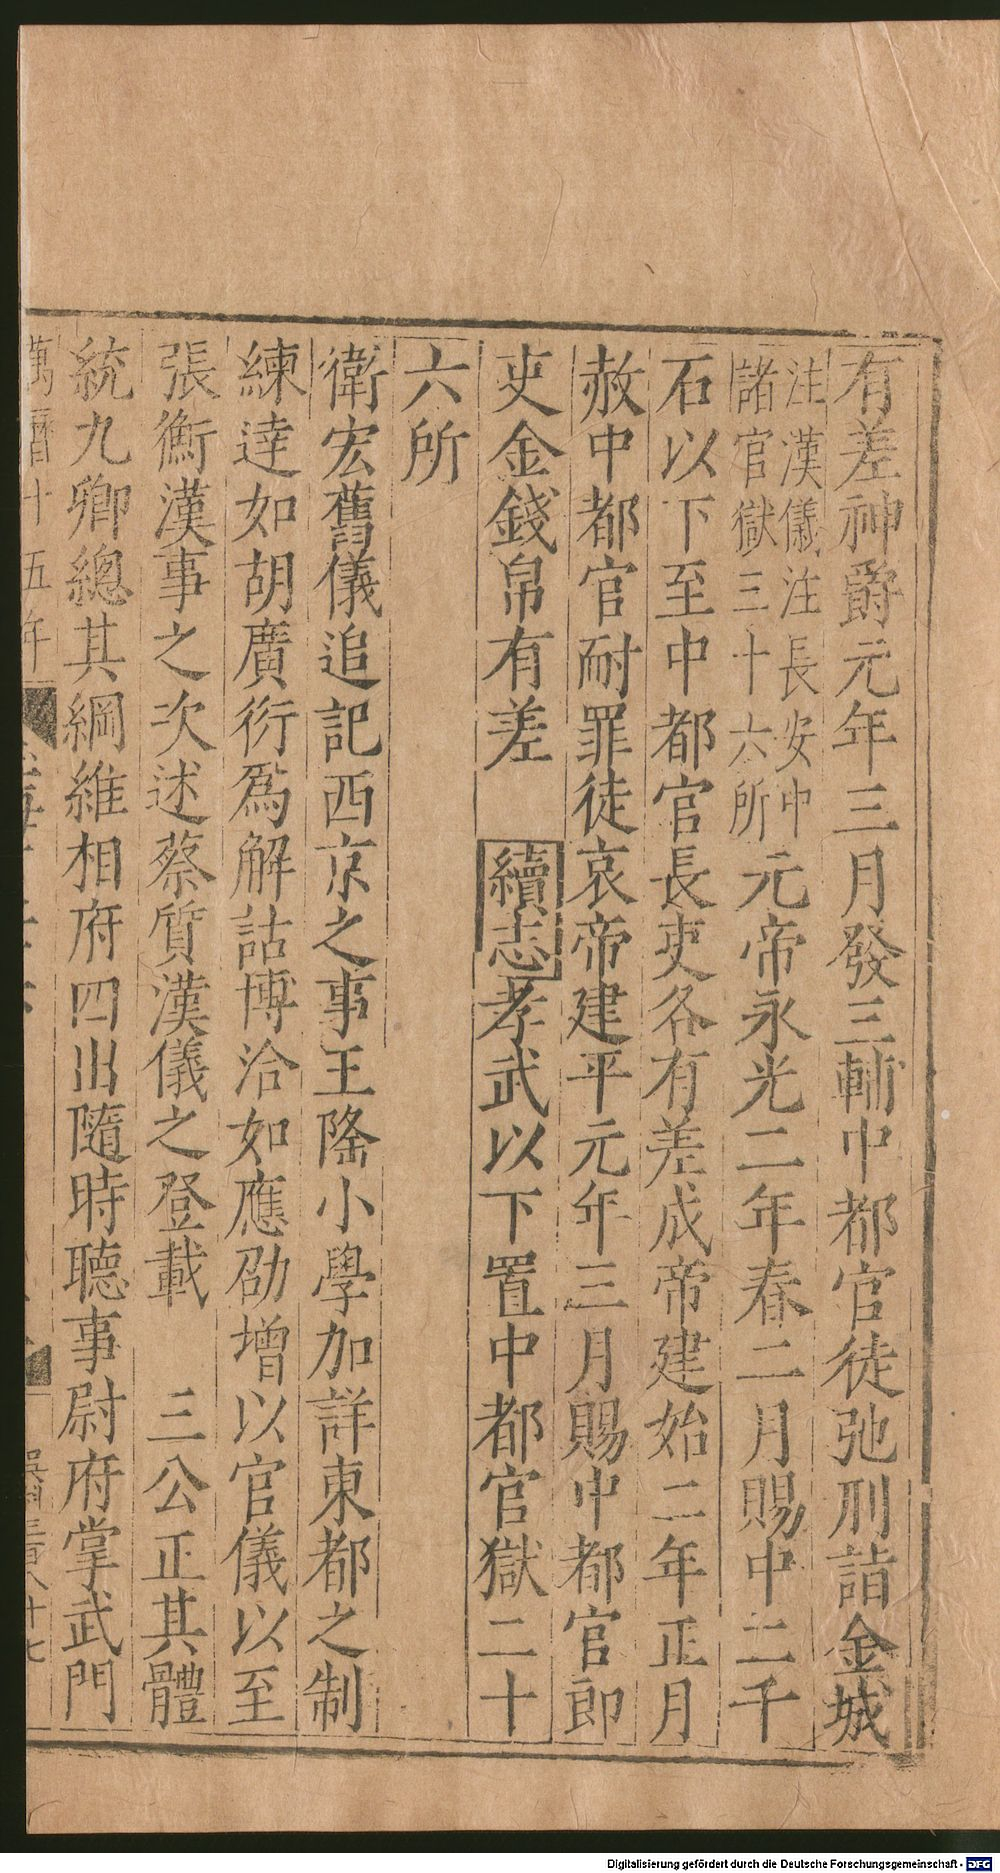 有差神爵元年三月發三輔中都官徒弛刑詣金城
注漢儀注長安中
諸官獄三十六所
元帝永光二年春二月賜中二千
石以下至中都官長吏各有差成帝建始二年正月
赦中都官耐罪徒哀帝建平元年三月賜中都官郎
吏金錢帛有差　續志孝武以下置中都官獄二十
六所
衛宏舊儀追記西京之事王隆小學加詳東都之制
練達如胡廣衍爲解詁博洽如應劭增以官儀以至
張衡漢事之次述蔡質漢儀之登載　三公正其體
統九卿總其綱維相府四出隨時聽事尉府掌武門
萬曆十五年
Digitalisierung gefördert durch die Deutsche Forschungsgemeinschaft - DFG